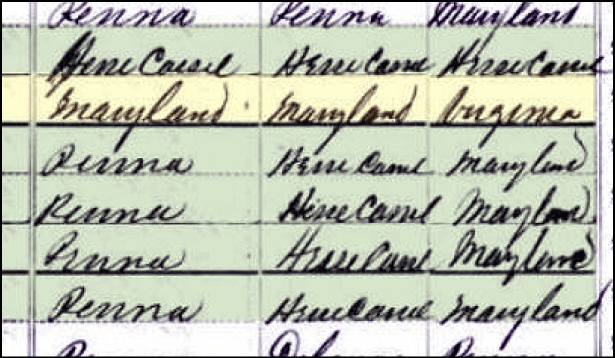 Penna Penna Maryland
Hesse Cassel Hesse Cassel Hesse Cassel
Maryland Maryland Virginia
Penna Hesse Cassel Maryland
Penna Hesse Cassel Maryland
Penna Hesse Cassel Maryland
Penna Hesse Cassel Maryland